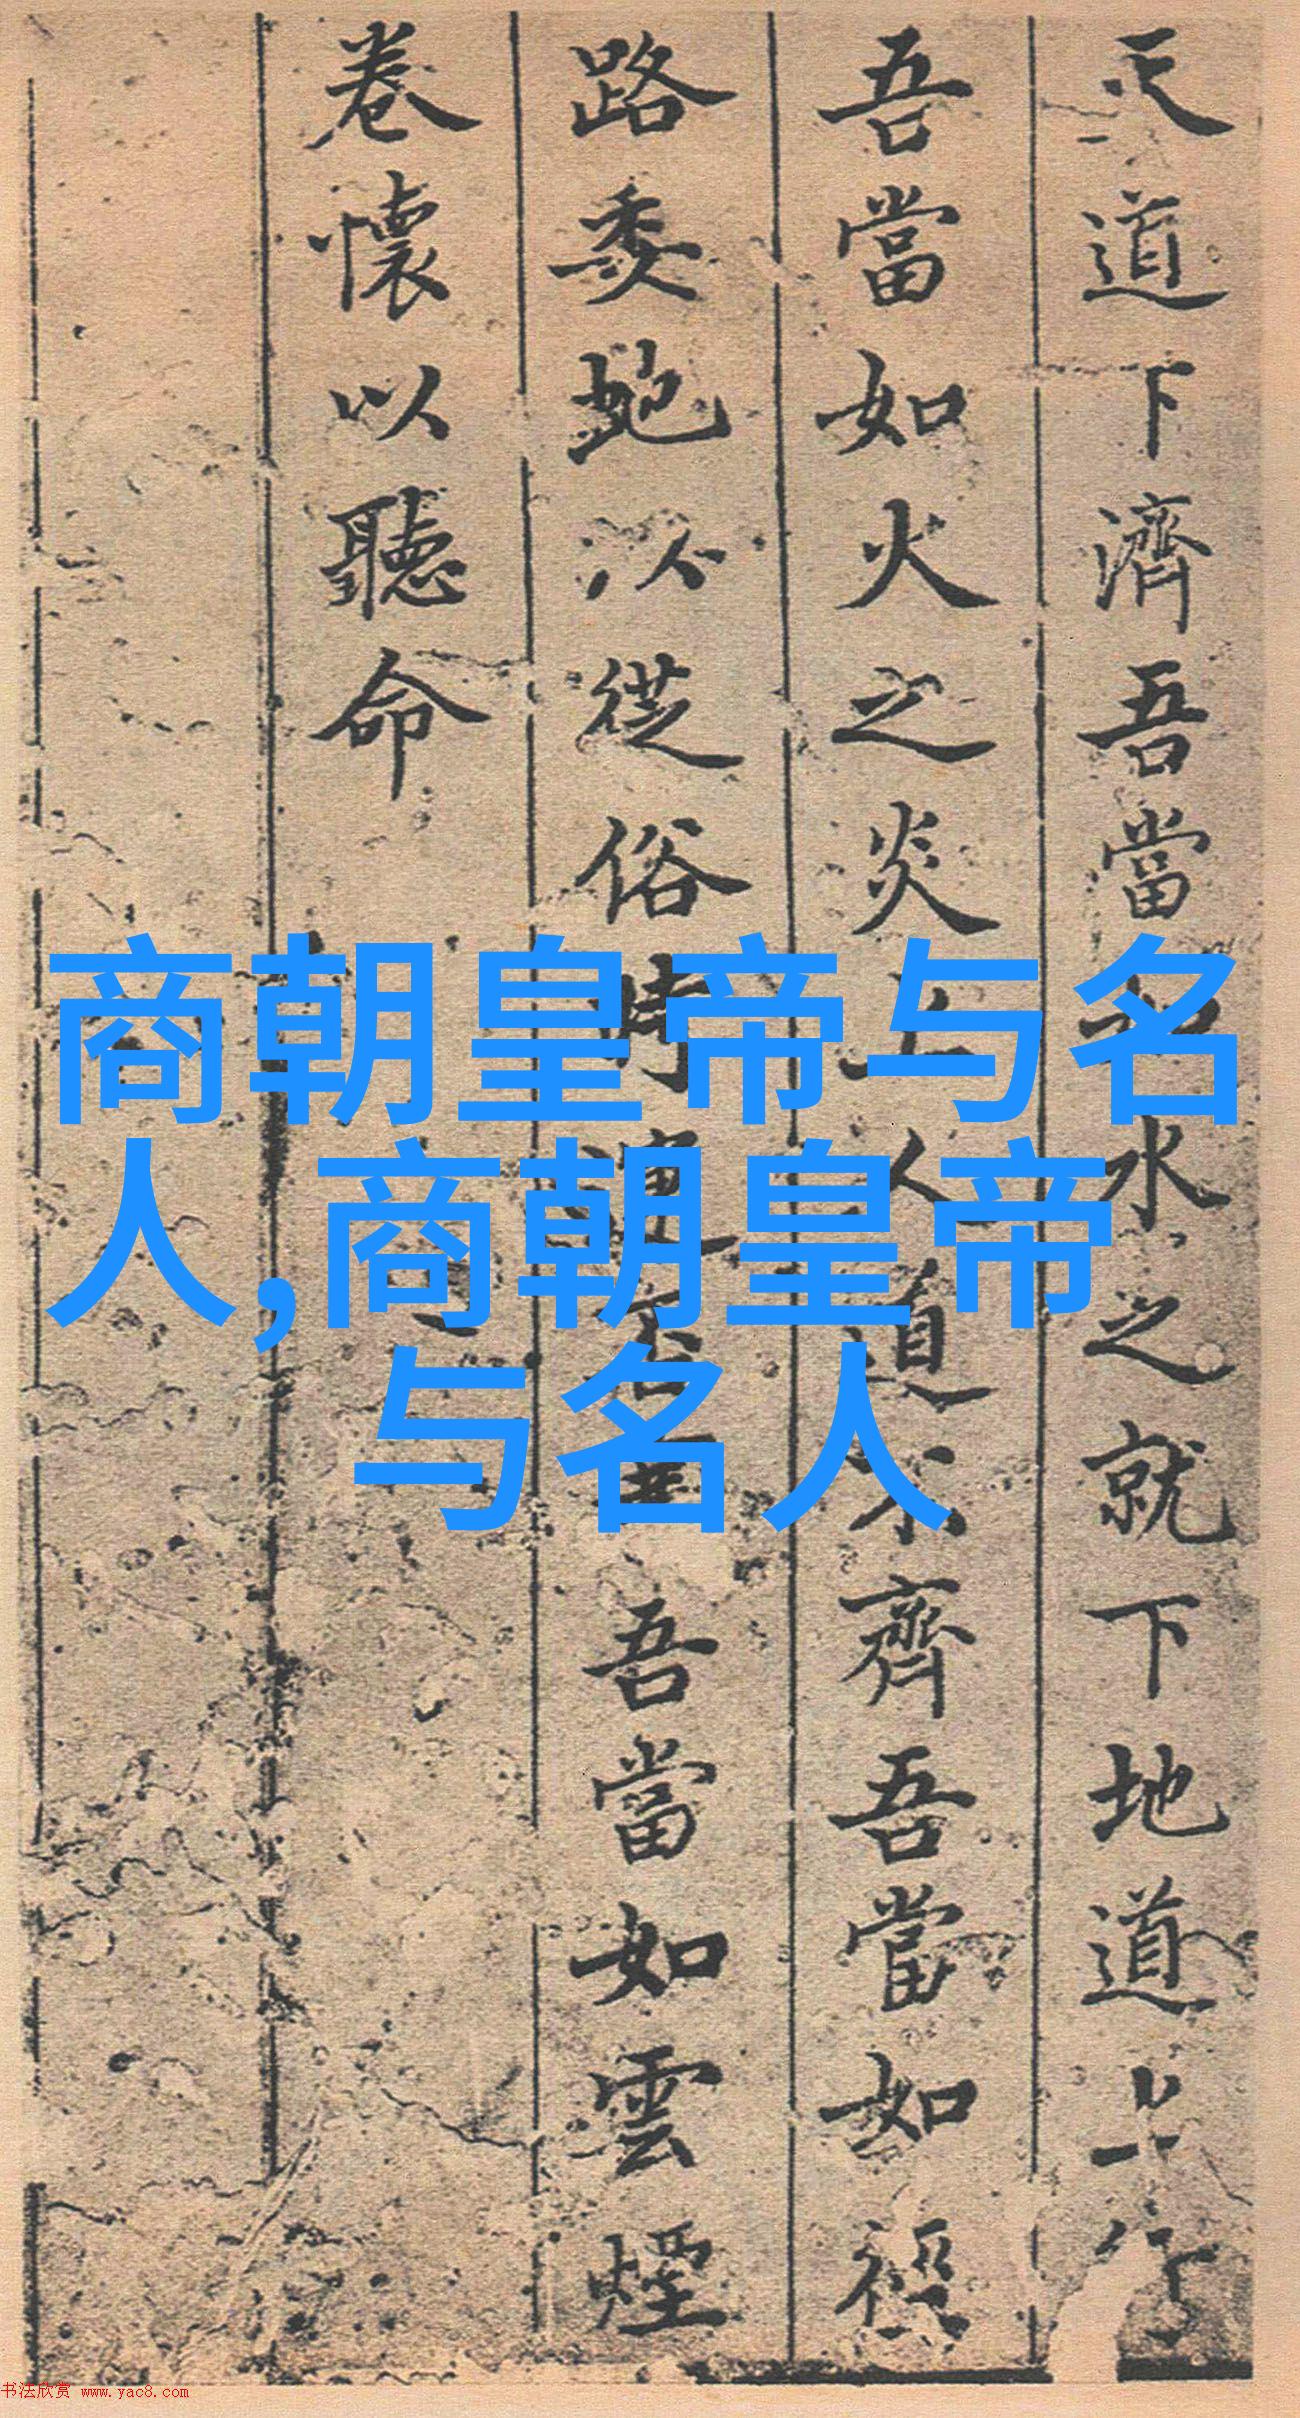 天道下濟吾當水之就下地道上行
吾當如火之炎人道不齊吾當如
路委虵以從俗時吾當如雲煙
卷懷以聽命
商朝皇帝与名
人,商朝皇帝
与名人
书法欣赏 www.yac8.com